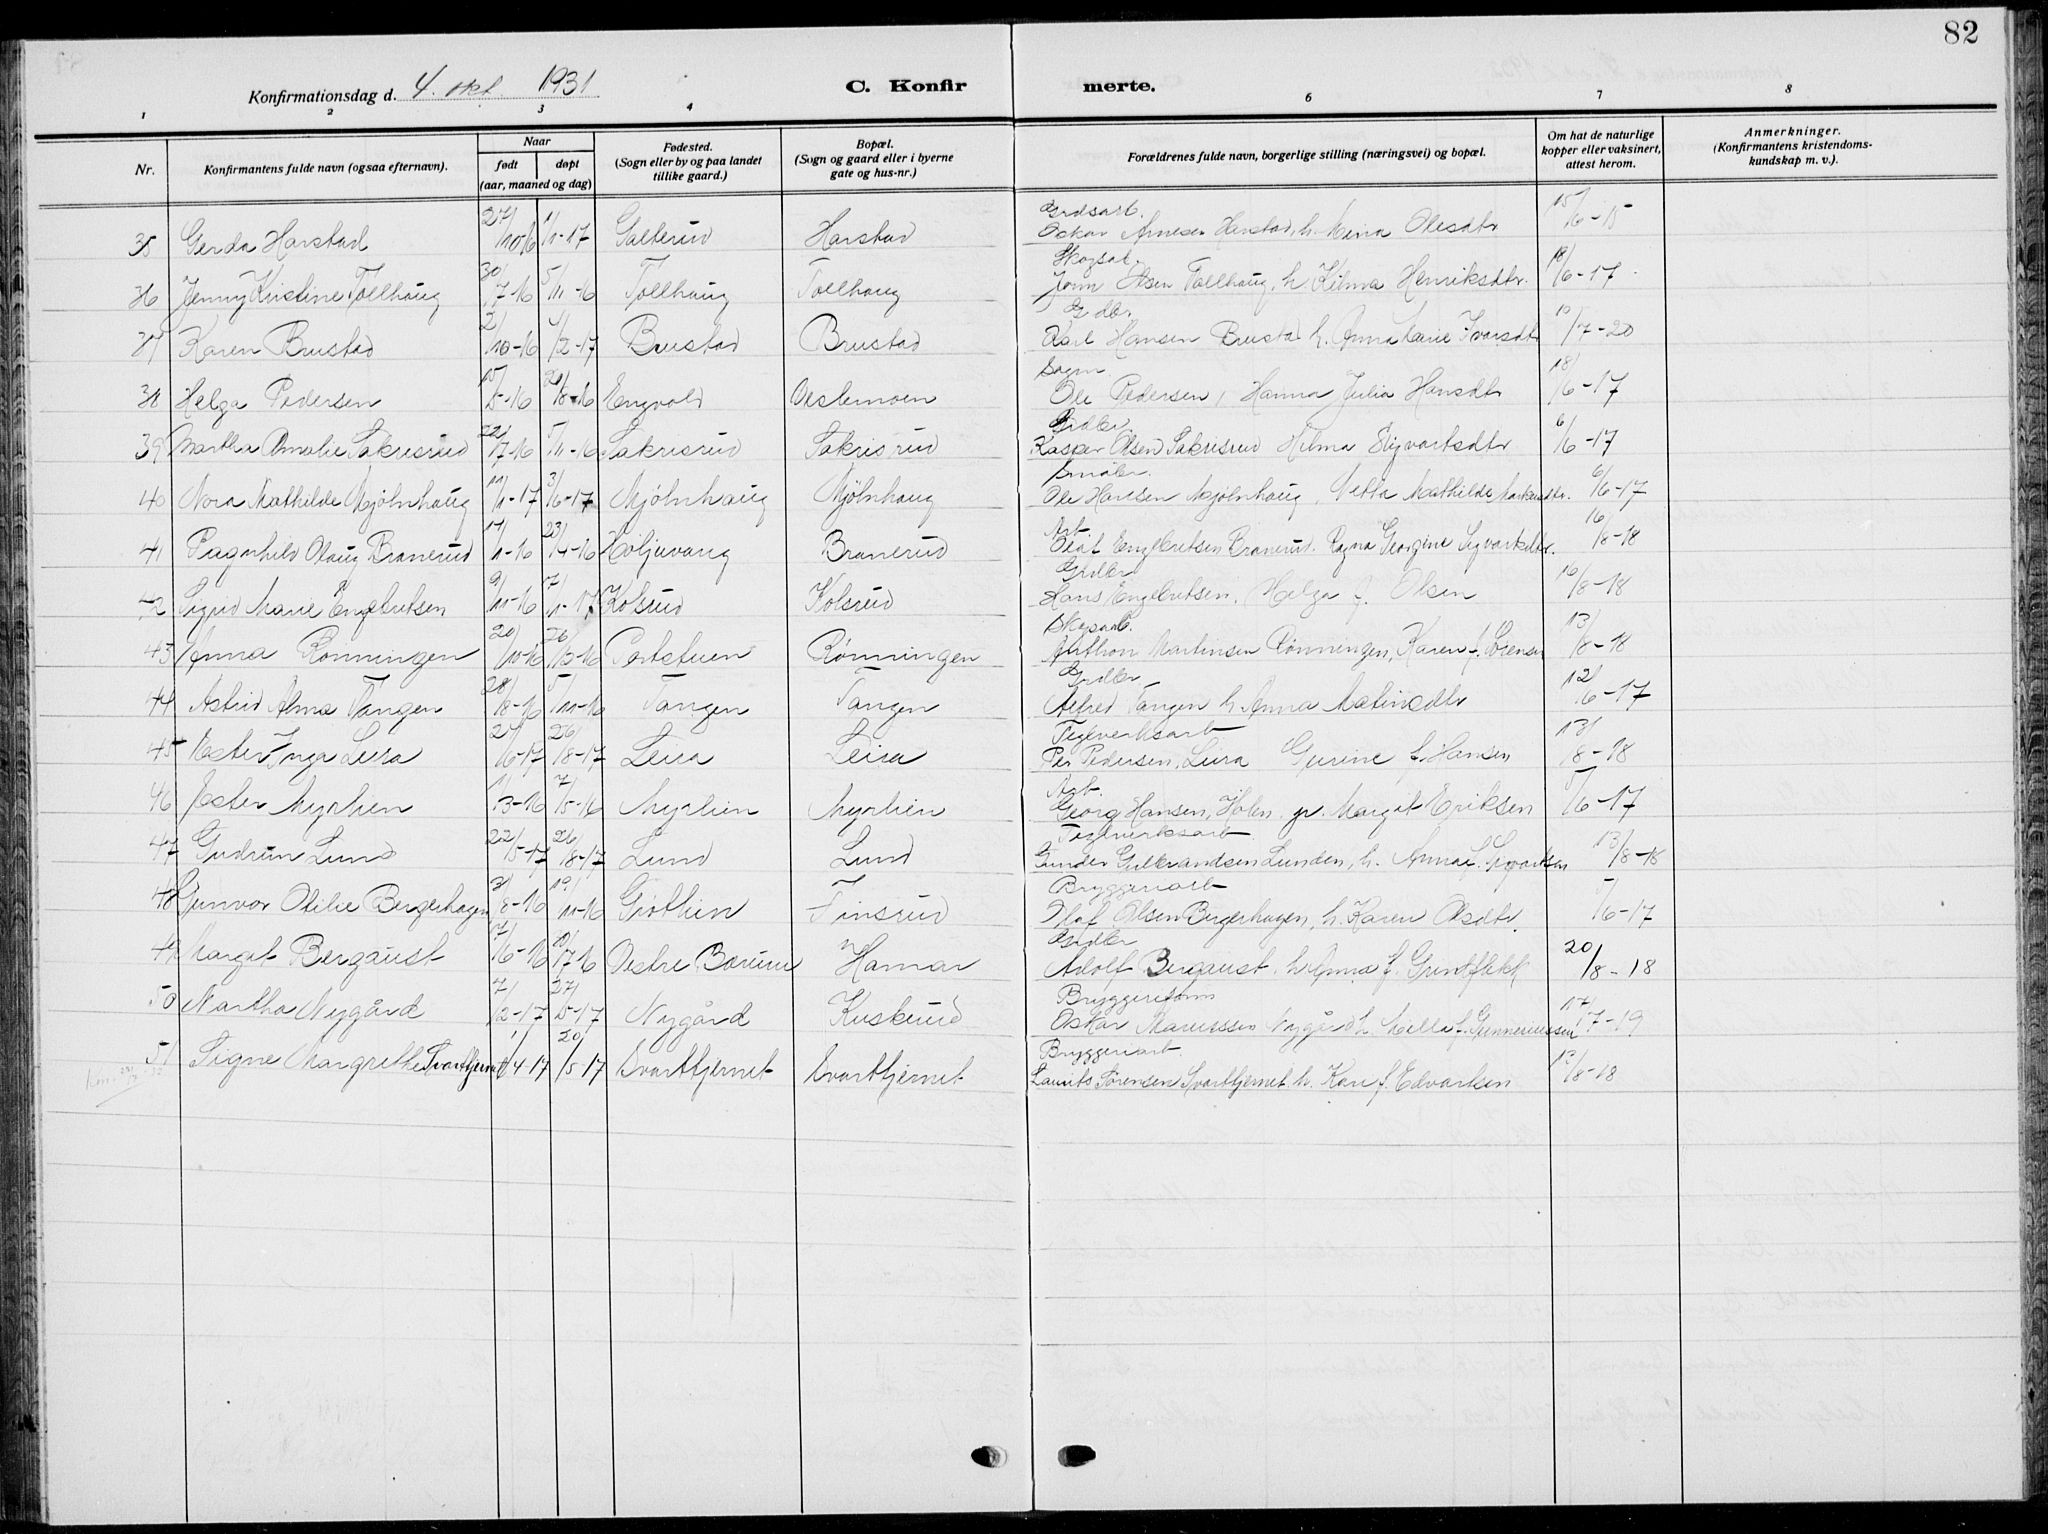 82
Konfirmationsdag d. 4. okt. 1931
C. Konfir
merte.
1 2 3 4 6 7 8
Nr.
Konfirmantens fulde navn (ogsaa efternavn).
Naar
født
døpt
(aar, maaned og dag)
Fødested.
(Sogn eller by og paa landet
tillike gaard.)
Bopæl.
(Sogn og gaard eller i byerne
gate og hus-nr.)
Forældrenes fulde navn, borgerlige stilling (næringsvei) og bopæl.
Om hat de naturlige
kopper eller vaksinert,
attest herom.
Anmerkninger.
(Konfirmantens kristendoms-
kundskap m. v.).
Grdsarb.
35 Gerda Harstad 27/10-16 1/1-17 Galterud Harstad Oskar Arnesen Harstad, h. Mina Olesdtr 15/6-15
Skogsarb.
36 Jenny Kristine Tollhaug 30/7-16 5/11-16 Tollhaug Tollhaug John Olsen Tollhaug, h. Hilma Henriksdtr. 18/6-17
Gdbr.
37 Karen Brustad 2/10-16 4/2-17 Brustad Brustad Karl Hansen Brustad h. Anna Marie Ivarsdtr 10/7-20
38 Helga Pedersen 15/5-16 20/8-16 Engvold Vestemoen Ole Pedersen, Hanna Julia Hansdtr 18/6-17
Grdbr.
39 Martha Amalie Sakrisrud 22/7-16 5/11-16 Sakrisrud Sakrisrud Kasper Olsen Sakrisrud Hilma Sigvartsdtr 6/6-17
Småbr.
40 Nora Mathilde Mjølnhaug 11/1-17 3/6-17 Mjølnhaug Mjølnhaug Ole Hansen Mjølnhaug, Netta Mathilde 6/6-17
Arb.
41 Ragnhild Olaug Branerud 17/1-16 23/4-16 Høljuvang Branerud Olaf Engebretsen Branerud. Ragna Georgine Sigvartsdtr. 16/8-18
Grdbr
42 Sigrid Marie Engebretsen 9/11-16 7/1-17 Kolsrud Kolsrud Hans Engebretsen, Helga f. Olsen 16/8-18
Skogsarb.
43 Anna Rønningen 20/10-16 26/12-16 Portstuen Rønningen Anthon Martinsen Rønningen, Karen f. Sørensen 13/8-18
Grdbr
44 Astrid Alma Tangen 28/8-16 5/11-16 Tangen Tangen Alfred Tangen h. Anna Matinsdtr 12/6-17
Teglverksarb
45 Ester Inga Leira 27/6-17 26/8-17 Leira Leira Per Pedersen, Leira Gurine f. Hansen 13/8-18
Arb.
46 Ester Myrlien 11/3-16 7/5-16 Myrlien Myrlien Georg Hansen, Holen. pr. Margit Eriksen 5/6-17
Teglverksarb
47 Gudrun Lund 22/5-17 26/8-17 Lund Lund Gunder Gulbrandsen Lunden, h. Anna f. Sigvartsen 13/8-18
Bryggeriarb
48 Gunvor Otilie Bergerhagen 3/8-16 19/11-16 Grøthien Finsrud Olaf Olsen Bergerhagen, h. Karen Olsdtr. 5/6-17
Grdbr
49 Margit Bergaust 7/6-16 Vestre Borum Hamar Adolf Bergaust h. Anna f. Grindflekk 20/8-18
Bryggeriform
50 Martha Nygård 7/2-17 27/5-17 Nygård Kuskerud Oskar Mariussen Nygård h. Milla f. Gunneriussen 17/7-19
Bryggeriarb.
51 Signe Margrethe Svarttjernet 1/4-17 20/5-17 Svarttjernet Svarttjernet Laurits Sørensen Svarttjernet h. Kari f. Edvartsen 13/8-18